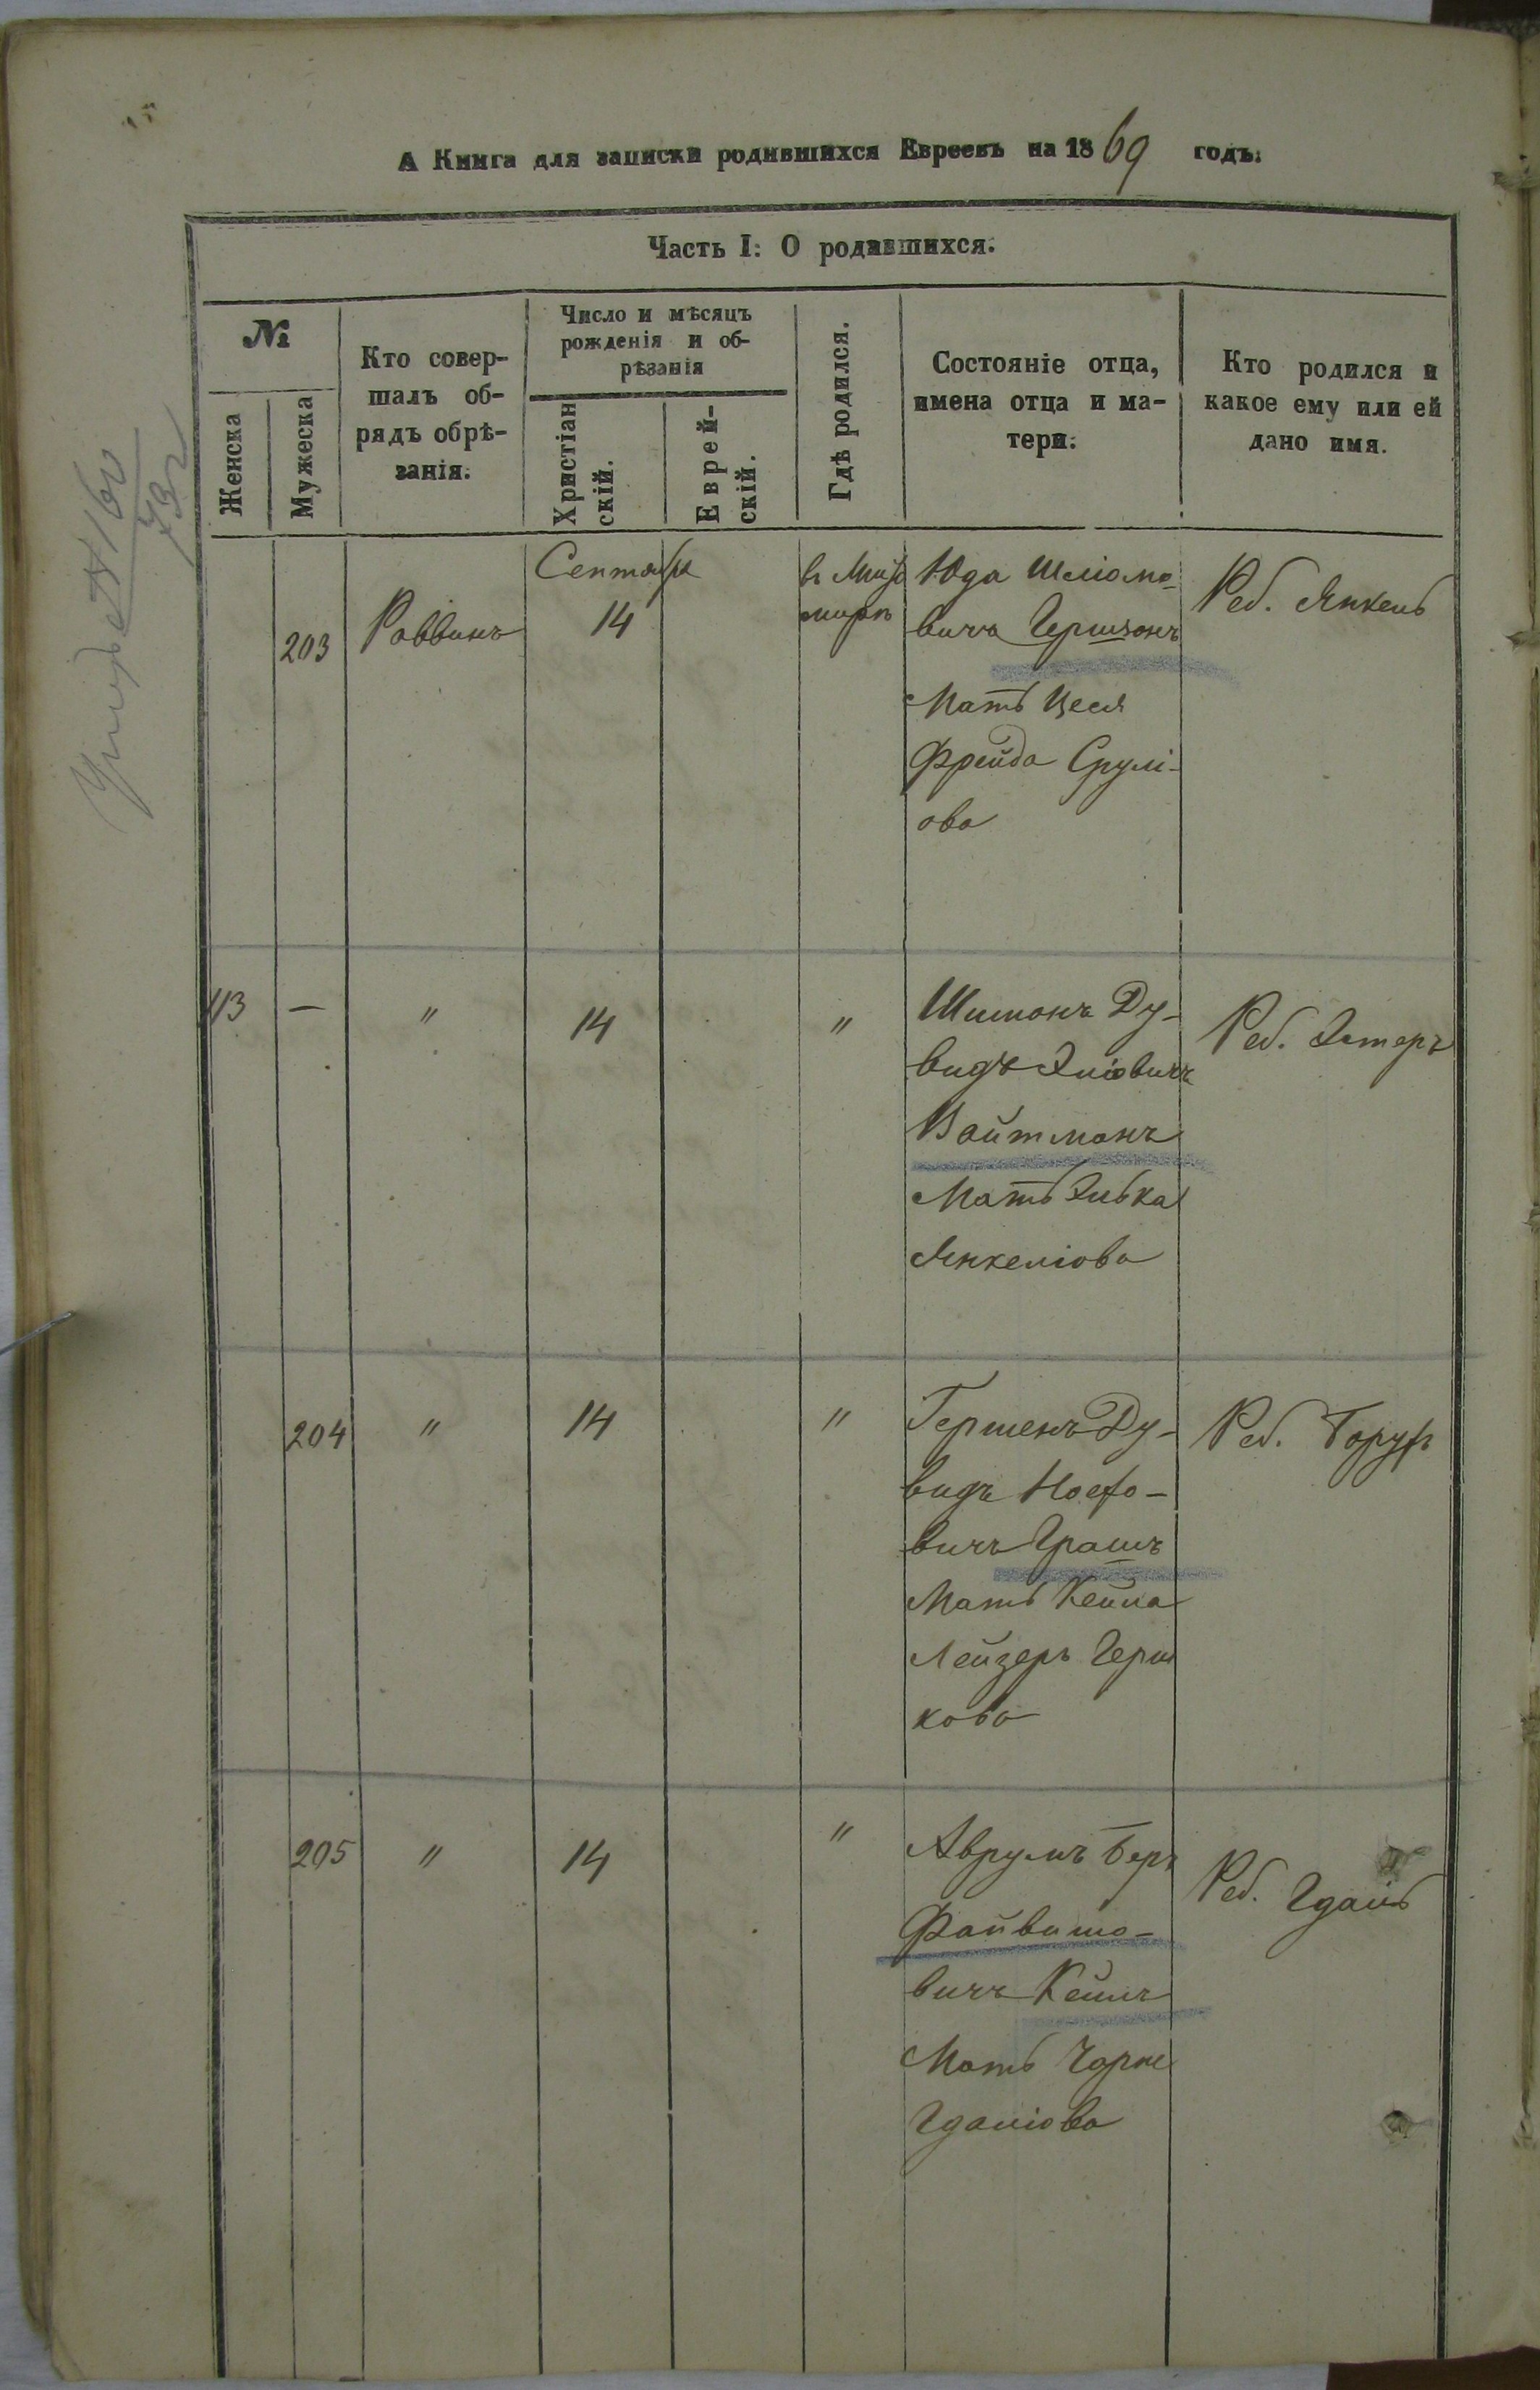 А Книга для записки родившихся Евреевъ на 1869 годъ.
Часть I: О родившихся.
№
Женска
Мужеска
Кто совер-
шалъ об-
рядъ обрѣ-
занія.
Число и мѣсяцъ
рожденія и об-
рѣзанія
Христіан
скій.
Еврей-
скій.
Гдѣ родился.
Состояніе отца,
имена отца и ма-
тери.
Кто родился и
какое ему или ей
дано имя.
203
Раввинъ
Сентября
14
в Жито
мирѣ
Юда Шлiомо-
вичъ Гершзонъ
Мать Цеся
Фрейда Срулі-
ова
Реб. Янкель
113
—
"
14
"
Шимонъ Ду-
видъ Эліовичъ
Вайтманъ
Мать Элька
Янкеліова
Реб. Эстеръ
204
"
14
"
Гершенъ Ду-
видъ Ноехо-
вичъ
Мать Кейла
Лейзеръ Герш
кова
Реб. Борухъ
205
"
14
"
Аврумъ Беръ
Файвишо-
вичъ
Мать Чарне
Гдаліова
Реб. Гдаль
Умеръ № 60